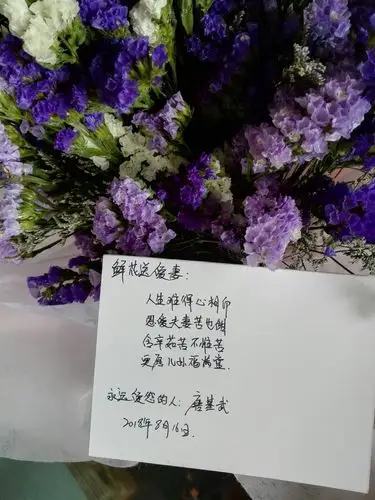 鲜花送爱妻：
人生难得心相印
恩爱夫妻苦也甜
含辛茹苦不怕苦
更愿儿孙福满堂.
永远爱您的人：唐基武
2018年8月16日.